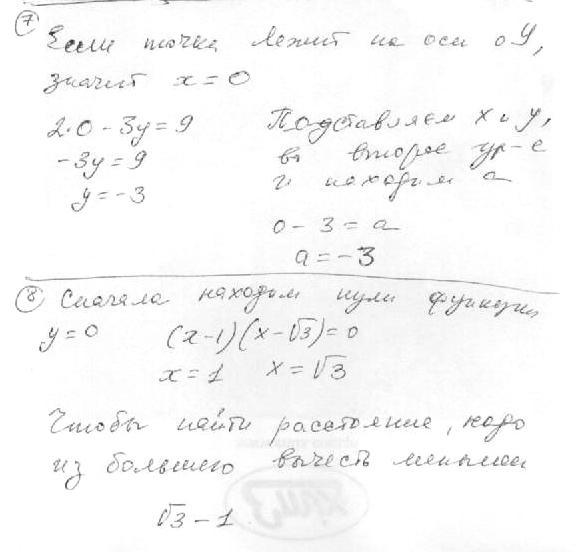 7 Если точка лежит на оси oY,
значит x = 0
2·0 - 3y = 9
-3y = 9
y = -3
Подставляем x и y,
во второе ур-е
и находим a
0 - 3 = a
a = -3
8 Сначала находим нули функции
y = 0 (x-1)(x-√3) = 0
x = 1 x = √3
Чтобы найти расстояние, надо
из большего вычесть меньшее
√3 - 1